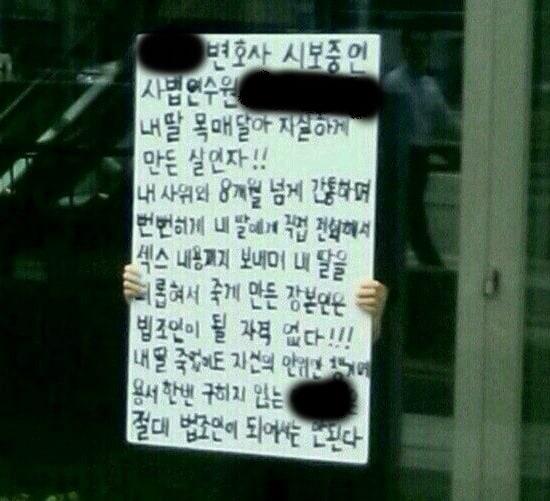 변호사 시보중인
사법연수원
내딸 목매달아 자살하게
만든 살인자!!
내 사위와 8개월 넘게 간통하며
뻔뻔하게 내 딸에게 직접 전화해서
섹스 내용까지 보내며 내 딸을
괴롭혀서 죽게 만든 장본인은
법조인이 될 자격 없다!!!
내딸 죽음에도 자신의 안위만
용서 한번 구하지 않는
절대 법조인이 되어서는 안된다